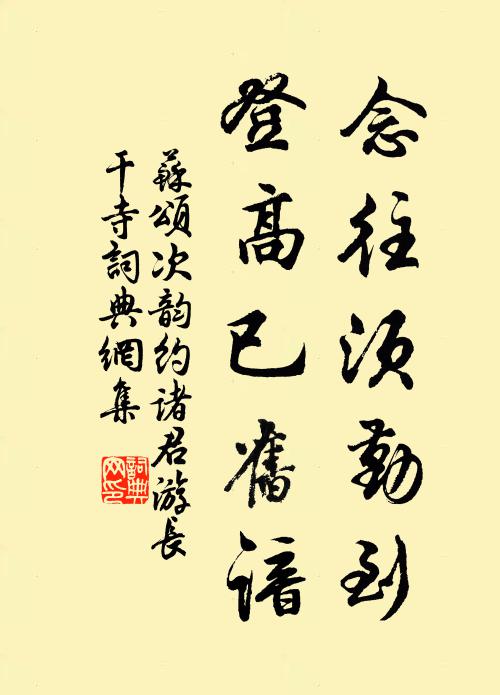 念往须勤到
登高已舊諳
蘇頌次韵约诸君游長
干寺詞典網集
詞典網印